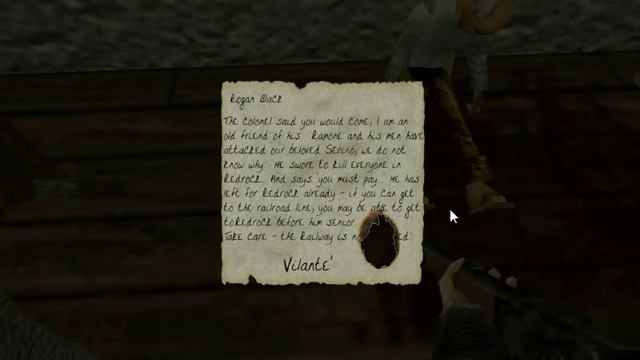 Rogan Black
The Colonel said you would come, I am an
old friend of his. Ramone and his men have
attacked our beloved Sereno, we do not
know why. He swore to kill everyone in
Redrock. And says 'you must pay.' He has
left for Redrock already - if you can get
to the railroad line, you may be able to get
to Redrock before him senior
Take care - the Railway is
Vilante'